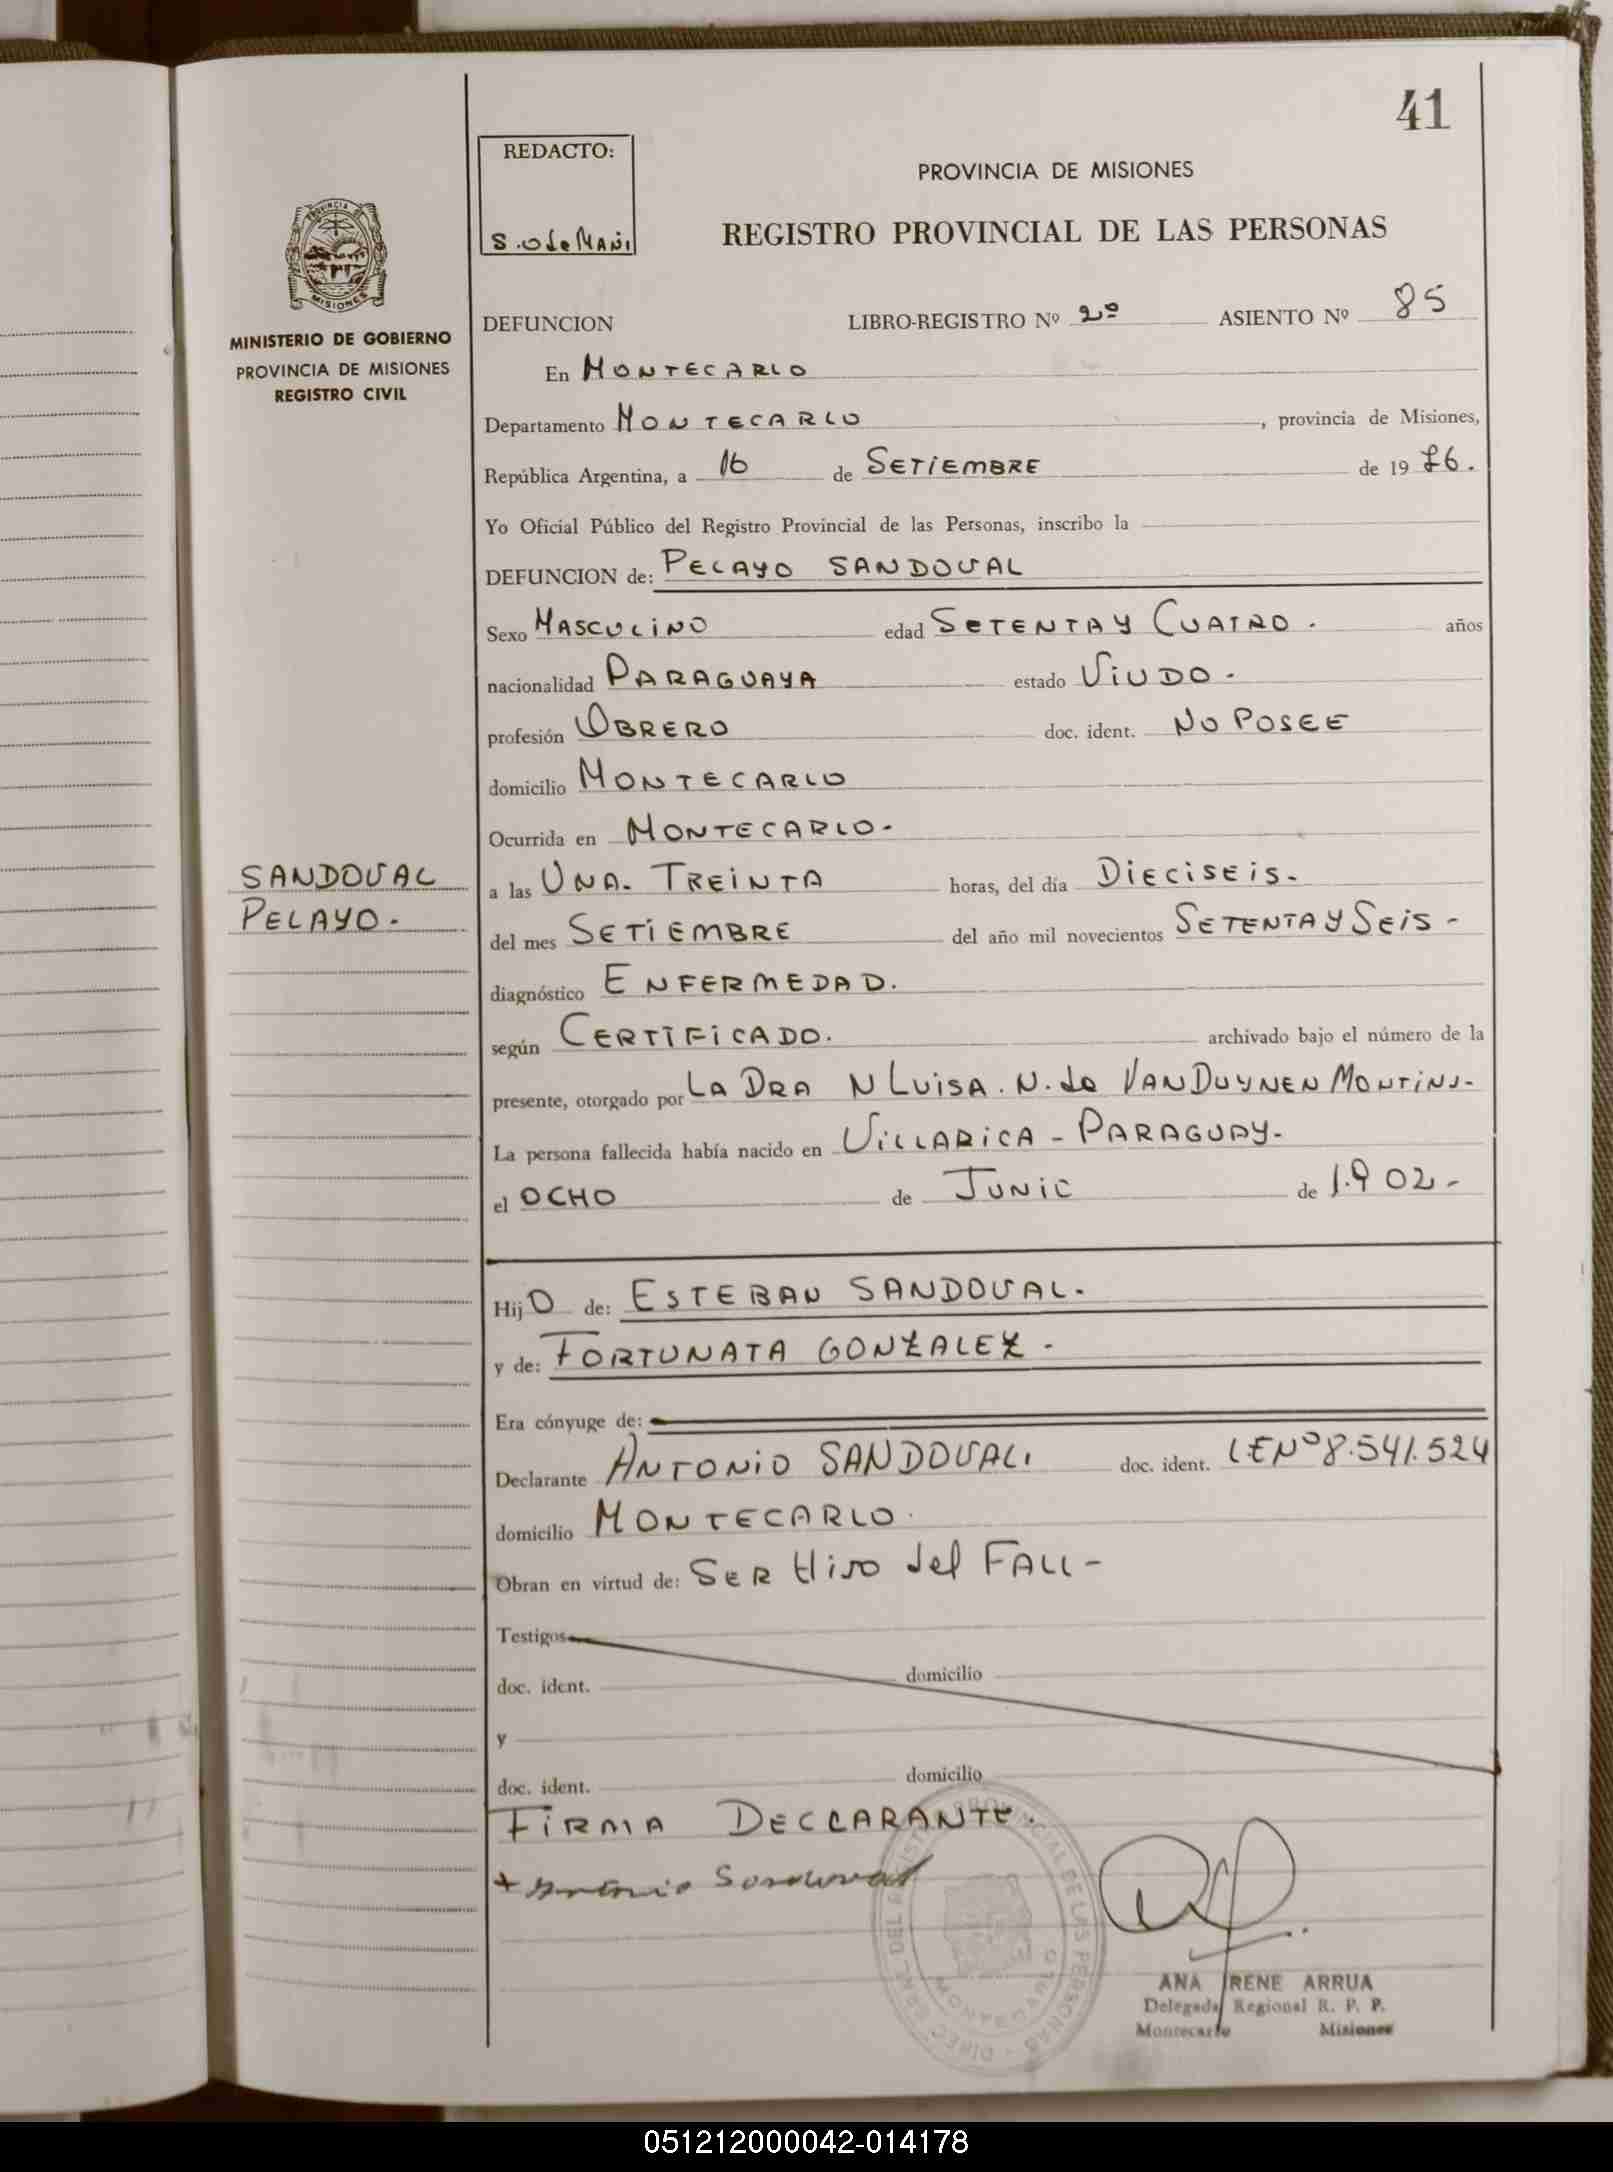 41
REDACTO:
PROVINCIA DE MISIONES
REGISTRO PROVINCIAL DE LAS PERSONAS
PROVINCIA DE
MISIONES
MINISTERIO DE GOBIERNO
PROVINCIA DE MISIONES
REGISTRO CIVIL
DEFUNCION LIBRO-REGISTRO Nº 2º ASIENTO Nº 85
En MONTECARLO
Departamento MONTECARLO, provincia de Misiones,
República Argentina, a 16 de SETIEMBRE de 1976.
Yo Oficial Público del Registro Provincial de las Personas, inscribo la
DEFUNCION de: PELAYO SANDOVAL
Sexo MASCULINO edad SETENTA Y CUATRO. años
nacionalidad PARAGUAYA estado VIUDO.
profesión OBRERO doc. ident. NO POSEE
domicilio MONTECARLO
Ocurrida en MONTECARLO.
SANDOVAL
PELAYO.
a las UNA. TREINTA horas, del día DIECISEIS.
del mes SETIEMBRE del año mil novecientos SETENTA Y SEIS-
diagnóstico ENFERMEDAD.
según CERTIFICADO. archivado bajo el número de la
presente, otorgado por LA DRA N LUISA. N. de VAN DUYNEN
La persona fallecida había nacido en VILLARICA - PARAGUAY-
el OCHO de JUNIO de 1.902-
Hij O de: ESTEBAN SANDOVAL.
y de: FORTUNATA GONZALEZ.
Era cónyuge de:
Declarante ANTONIO SANDOVAL. doc. ident. LE Nº 8.541.524
domicilio MONTECARLO.
Obran en virtud de: SER HIJO del FALL-
Testigos
doc. ident. domicilio
y
doc. ident. domicilio
FIRMA DECLARANTE.
+ Antonio Sandoval
DIREC. GRAL. DEL REGISTRO PROVINCIAL DE LAS PERSONAS
MONTECARLO
ANA IRENE ARRUA
Delegada Regional R. P. P.
Montecarlo Misiones
051212000042-014178